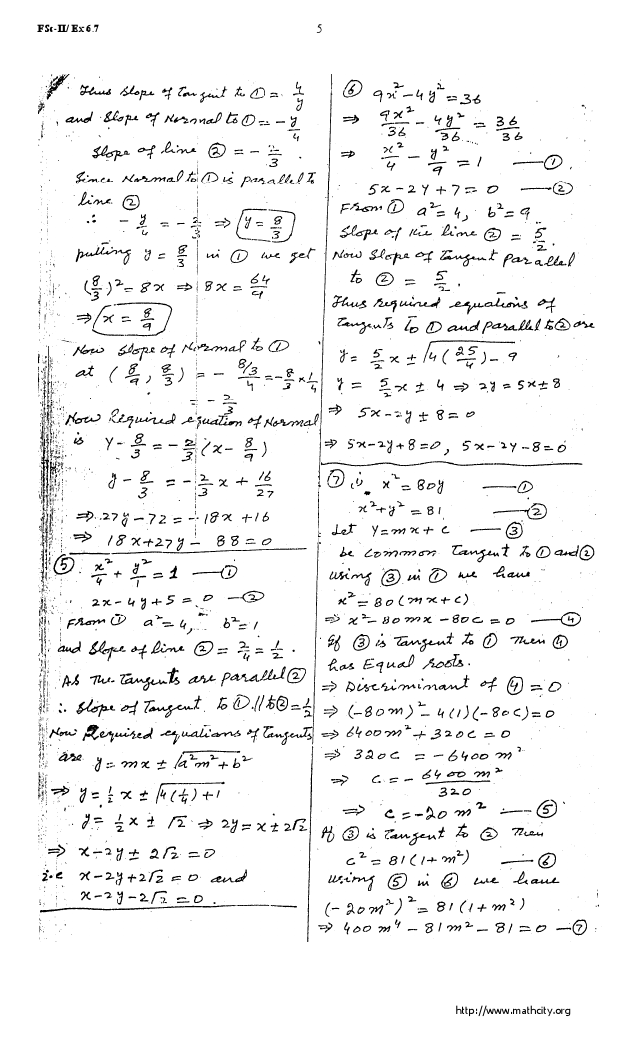 FSc-II/ Ex 6.7
5
Thus Slope of Tangent to ① = 4/y
and Slope of Normal to ① = -y/4
Slope of line ② = -2/3
Since Normal to ① is parallel to
line ②
∴ -y/4 = -2/3 ⇒ y = 8/3
putting y = 8/3 in ① we get
(8/3)² = 8x ⇒ 8x = 64/9
⇒ x = 8/9
Now Slope of Normal to ①
at (8/9, 8/3) = - (8/3)/4 = -8/3 × 1/4
= -2/3
Now Required equation of Normal
is y - 8/3 = -2/3 (x - 8/9)
y - 8/3 = -2/3 x + 16/27
⇒ 27y - 72 = -18x + 16
⇒ 18x + 27y - 88 = 0
⑤ x²/4 + y²/1 = 1 —①
2x - 4y + 5 = 0 —②
From ① a² = 4, b² = 1
and Slope of line ② = 2/4 = 1/2.
As The Tangents are parallel ②
∴ Slope of Tangent to ① // to ② = 1/2
Now Required equations of Tangents
are y = mx ± √(a²m² + b²)
⇒ y = 1/2 x ± √(4(1/4) + 1)
y = 1/2 x ± √2 ⇒ 2y = x ± 2√2
⇒ x - 2y ± 2√2 = 0
i.e x - 2y + 2√2 = 0 and
x - 2y - 2√2 = 0.
⑥ 9x² - 4y² = 36
⇒ 9x²/36 - 4y²/36 = 36/36
⇒ x²/4 - y²/9 = 1 —①
5x - 2y + 7 = 0 —②
From ① a² = 4, b² = 9
Slope of the line ② = 5/2.
Now Slope of Tangent parallel
to ② = 5/2.
Thus Required equations of
Tangents To ① and parallel to ② are
y = 5/2 x ± √(4(25/4) - 9)
y = 5/2 x ± 4 ⇒ 2y = 5x ± 8
⇒ 5x - 2y ± 8 = 0
⇒ 5x - 2y + 8 = 0, 5x - 2y - 8 = 0
⑦ i, x² = 80y —①
x² + y² = 81 —②
Let y = mx + c —③
be common Tangent to ① and ②
using ③ in ① we have
x² = 80(mx + c)
⇒ x² - 80mx - 80c = 0 —④
If ③ is Tangent to ① Then ④
has Equal roots.
⇒ Discriminant of ④ = 0
⇒ (-80m)² - 4(1)(-80c) = 0
⇒ 6400m² + 320c = 0
⇒ 320c = -6400m²
⇒ c = - 6400m²/320
⇒ c = -20m² —⑤
If ③ is Tangent to ② Then
c² = 81(1 + m²) —⑥
using ⑤ in ⑥ we have
(-20m²)² = 81(1 + m²)
⇒ 400m⁴ - 81m² - 81 = 0 —⑦
http://www.mathcity.org